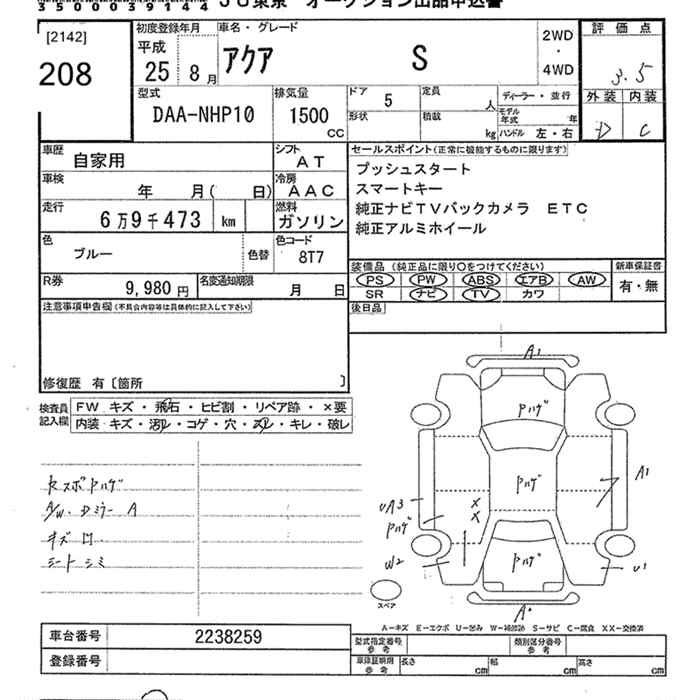 3500039144 JU東京 オークション出品申込書
[2142]
208
初度登録年月
平成
25年 8月
車名・グレード
アクア S
2WD
・
4WD
評価点
3.5
外装 内装
D C
型式
DAA-NHP10
排気量
1500
CC
ドア 5
形状
定員 人
積載 kg
ディーラー・並行
モデル年式 年
ハンドル 左・右
車歴
自家用
シフト
AT
車検
年 月( 日)
冷房
AAC
走行
6万9千473 km
燃料
ガソリン
色
ブルー
色替
色コード
8T7
R券
9,980円
名変通知期限
月 日
セールスポイント(正常に機能するものに限ります)
プッシュスタート
スマートキー
純正ナビTVバックカメラ ETC
純正アルミホイール
装備品(純正品に限り○をつけてください)
PS PW ABS エアB AW
SR ナビ TV カワ
新車保証書
有・無
後日品
注意事項申告欄(不具合内容等は具体的に記入して下さい)
修復歴 有〔箇所 〕
検査員
記入欄
FW キズ・飛石・ヒビ割・リペア跡・×要
内装 キズ・汚れ・コゲ・穴・スレ・キレ・破レ
A/W・Dミラー A
キズ 凹
シート シミ
A1
Pハゲ
Pハゲ
Pハゲ
A1
UA3
Pハゲ
X
X
W2
U1
A
スペア
A-キズ E-エクボ U-凹み W-補修跡 S-サビ C-腐食 XX-交換済
車台番号 2238259
登録番号
型式指定番号
参考
類別区分番号
参考
車庫証明用
参考
長さ cm
幅 cm
高さ cm